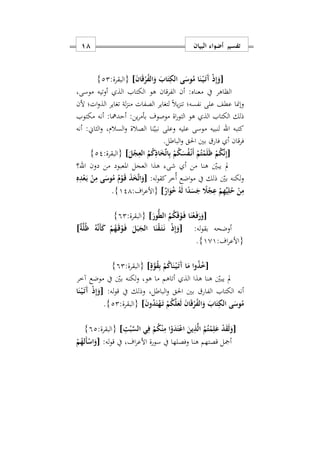 تفسير أضواء البيان ١٨
[وَإِذْ آَتَيْنَا مُوسَى الكِتَابَ وَالْفُرْقَانَ] {البقرة:٥٣}
الظاهر في معناه: أن الفرقان هو الكتاب الذي أوتيه موسى،
وإنما عطف على نفسه؛ تنزيلاً لتغاير الصفات منزلة تغاير الذوات؛ لأن
ذلك الكتاب الذي هو التوراة موصوف بأمرين: أحدهما: أنه مكتوب
كتبه الله لنبيه موسى عليه وعلى نبيّنا الصلاة والسلام، والثاني: أنه
فرقان أي فارق بين الحق والباطل.
[إِنَّكُمْ ظَلَمْتُمْ أَنْفُسَكُمْ بِاتِّخَاذِكُمُ العِجْلَ] {البقرة:٥٤}
لم يبيّن هنا من أي شيء هذا العجل المعبود من دون الله؟
ولكنه بيّن ذلك في مواضع أُخر كقوله: [وَاتَّخَذَ قَوْمُ مُوسَى مِنْ بَعْدِهِ
مِنْ حُلِيِّهِمْ عِجْلًا جَسَدًا لَهُ خُوَارٌ] {الأعراف:١٤٨}.
[وَرَفَعْنَا فَوْقَكُمُ الطُّورَ] {البقرة:٦٣}
أوضحه بقوله: [وَإِذْ نَتَقْنَا الجَبَلَ فَوْقَهُمْ كَأَنَّهُ ظُلَّةٌ]
{الأعراف:١٧١}.
[خُذُوا مَا آَتَيْنَاكُمْ بِقُوَّةٍ] {البقرة:٦٣}
لم يبيّن هنا هذا الذي أتاهم ما هو، ولكنه بيّن في موضع آخر
أنه الكتاب الفارق بين الحق والباطل، وذلك في قوله: [وَإِذْ آَتَيْنَا
مُوسَى الكِتَابَ وَالْفُرْقَانَ لَعَلَّكُمْ تَهْتَدُونَ] {البقرة:٥٣}.
[وَلَقَدْ عَلِمْتُمُ الَّذِينَ اعْتَدَوْا مِنْكُمْ فِي السَّبْتِ] {البقرة:٦٥}
أجمل قصتهم هنا وفصلها في سورة الأعراف، في قوله: [وَاسْأَلْهُمْ